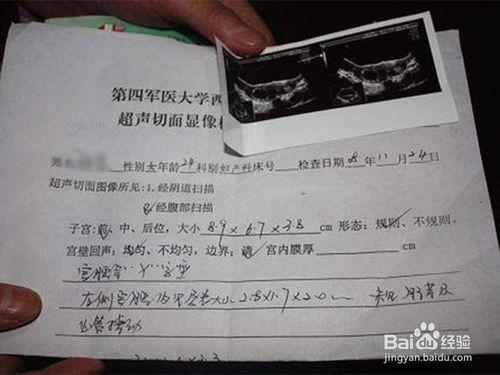 第四军医大学西
超声切面显像
性别女年龄24科别妇产科床号 检查日期08年11月24日
超声切面图像所见:1.经阴道扫描
2.经腹部扫描
子宫:前、中、后位,大小8.9×6.7×3.8cm 形态:规则、不规则、
宫壁回声:均匀、不均匀,边界:清 宫内膜厚 cm
宫腔
左侧宫腔内 大小2.8×1.7×2.0cm 未见胚芽及
心管搏动
Baidu经验
jingyan.baidu.com